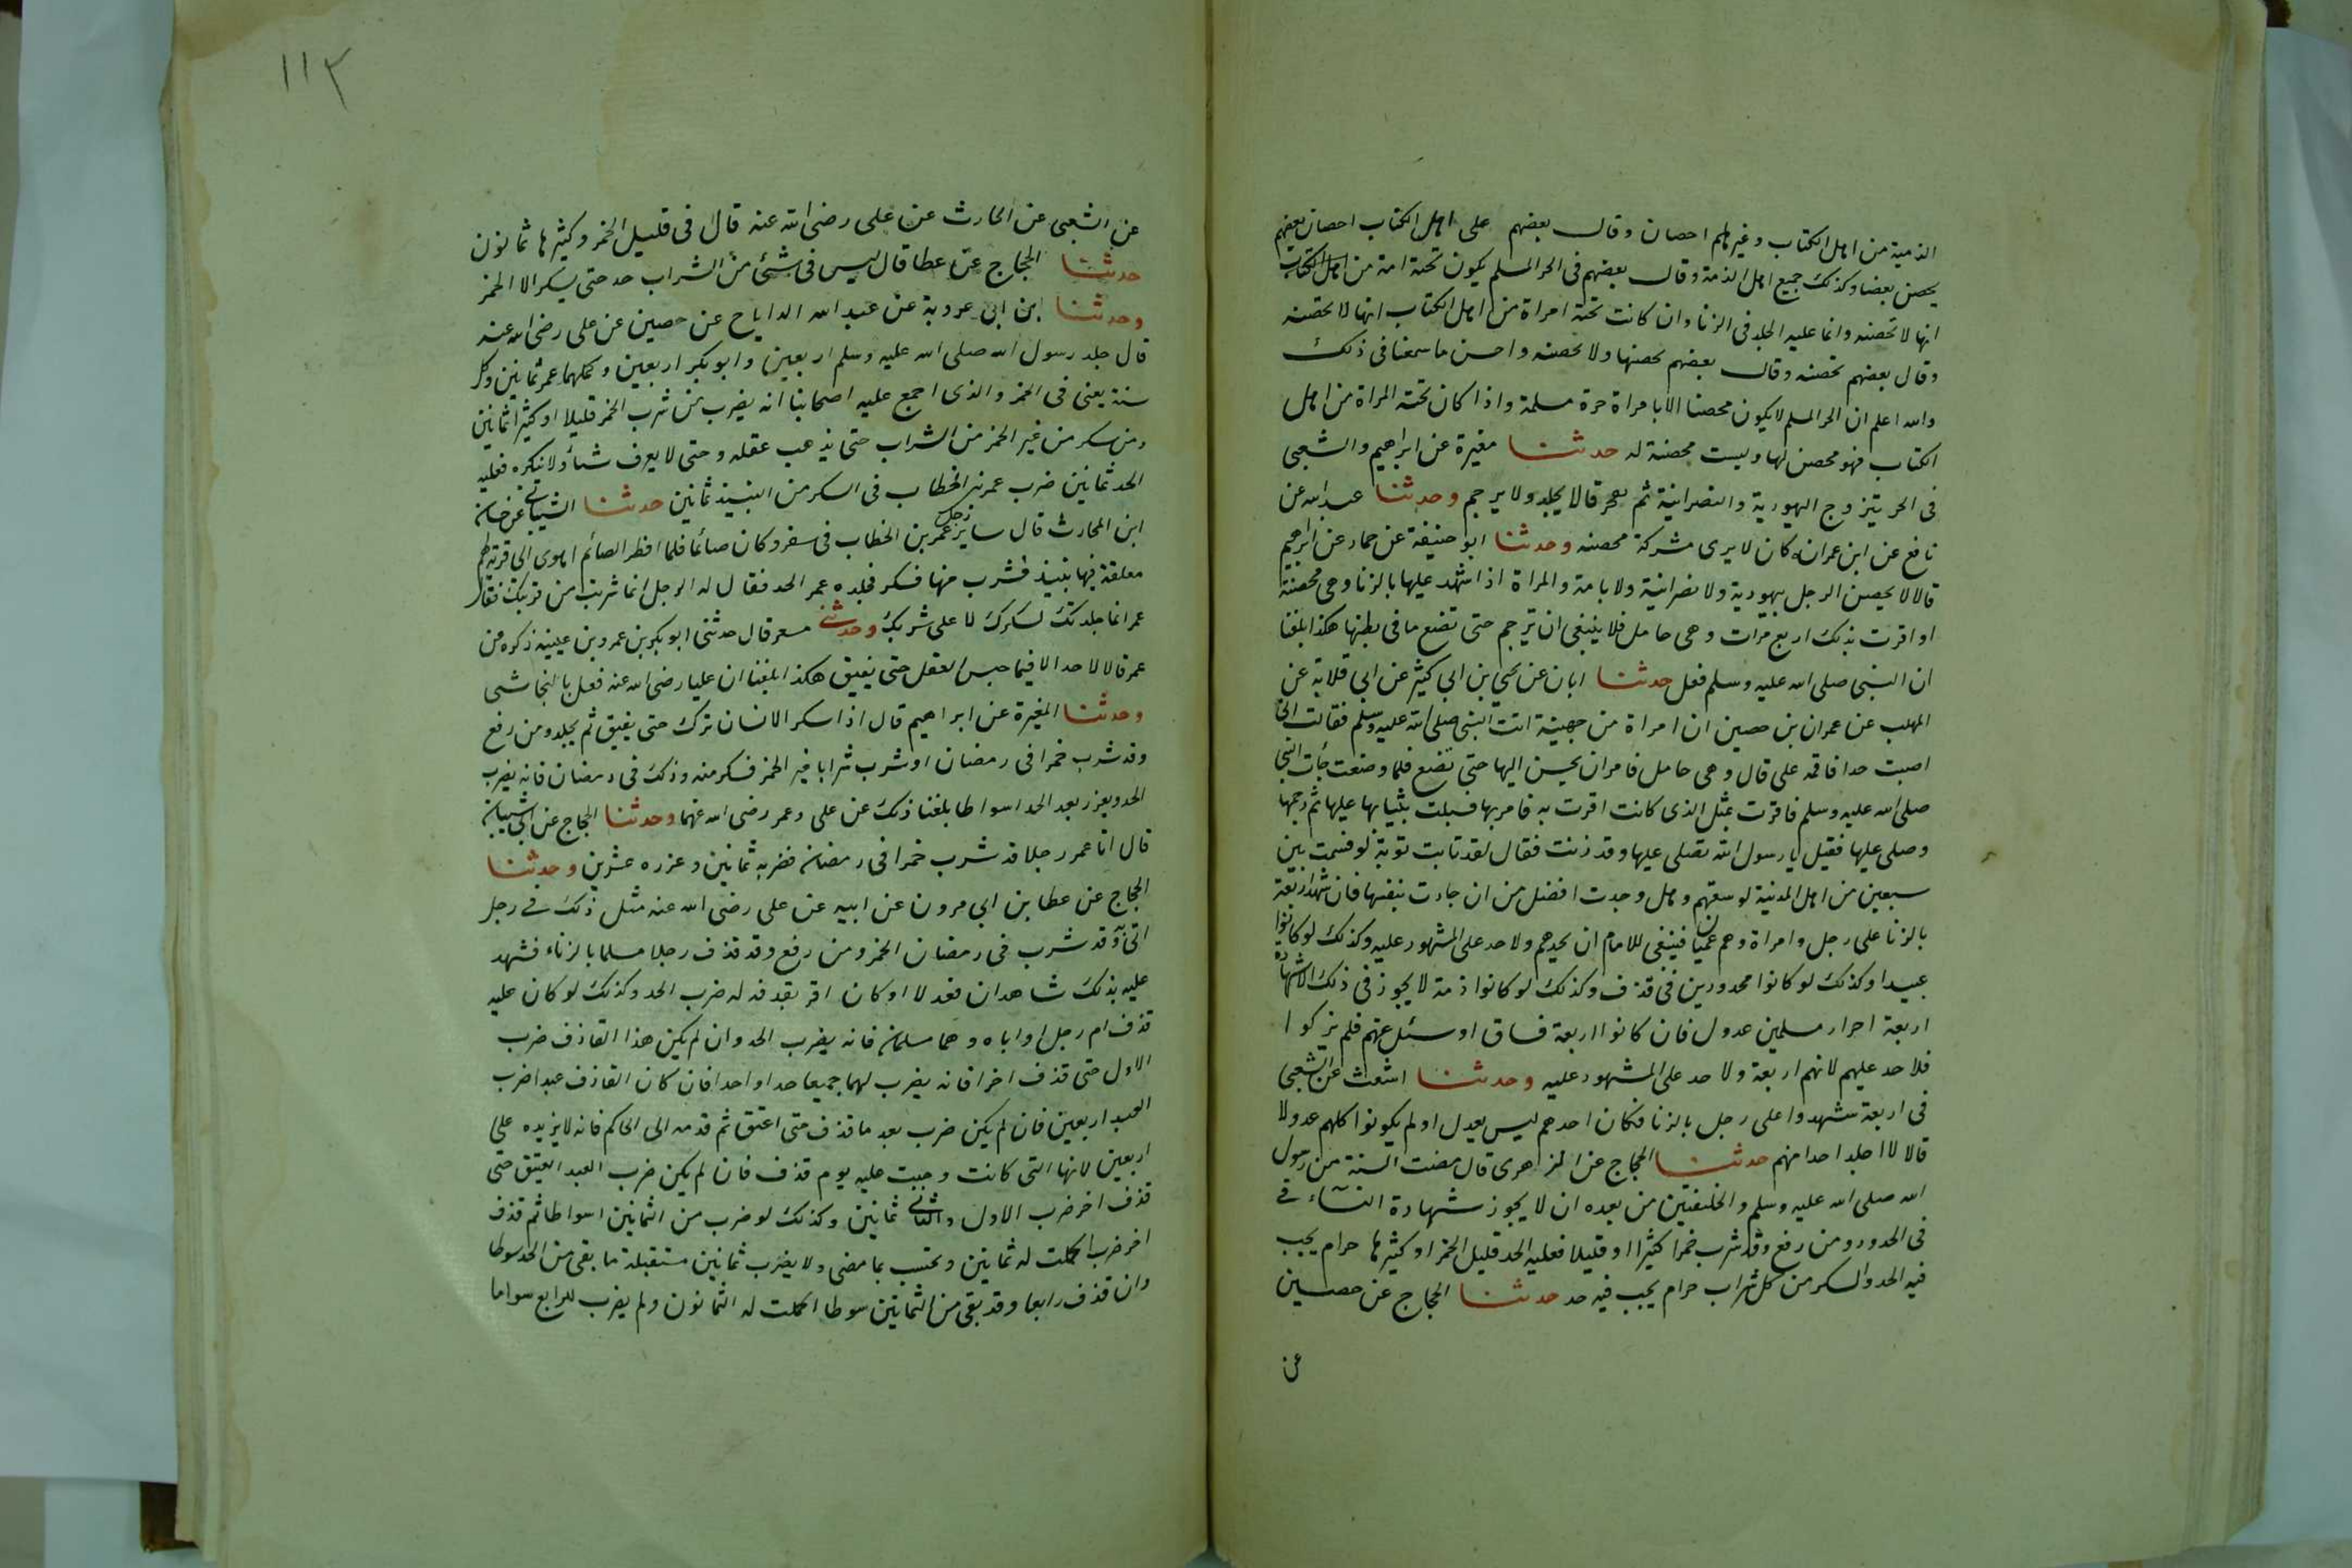 الذمية من اهل الكتاب وغيرهم احصان وقال بعضهم على اهل الكتاب احصان بعضهم
يحصن بعضا وكذلك جميع اهل الذمة وقال بعضهم فى الحر المسلم يكون تحته امة من اهل الكتاب
انها لا تحصنه وانما عليه الجلد فى الزنا وان كانت تحته امراة من اهل الكتاب انها لا تحصنه
وقال بعضهم تحصنه وقال بعضهم يحصنها ولا تحصنه واحسن ما سمعنا فى ذلك
والله اعلم ان الحر المسلم لا يكون محصنا الا بامراة حرة مسلمة واذا كان تحته المراة من اهل
الكتاب فهو محصن لها وليست محصنة له حدثنا مغيرة عن ابراهيم والشعبى
فى الحر يتزوج اليهودية والنصرانية ثم يفجر قالا يجلد ولا يرجم وحدثنا عبد الله عن
نافع عن ابن عمر انه كان لا يرى مشركة محصنه وحدثنا ابو حنيفة عن حماد عن ابراهيم
قالا لا يحصن الرجل بيهودية ولا نصرانية ولا بامة والمراة اذا شهد عليها بالزنا وهى محصنة
او اقرت بذلك اربع مرات وهى حامل فلا ينبغى ان ترجم حتى تضع ما فى بطنها هكذا بلغنا
ان النبى صلى الله عليه وسلم فعل حدثنا ابان عن يحيى بن ابى كثير عن ابى قلابة عن
المهلب عن عمران بن حصين ان امراة من جهينة اتت النبى صلى الله عليه وسلم فقالت انى
اصبت حدا فاقمه على قال وهى حامل فامر ان يحسن اليها حتى تضع فلما وضعت جأت النبى
صلى الله عليه وسلم فاقرت بمثل الذى كانت اقرت به فامر بها فسبلت بثيابها عليها ثم رجمها
وصلى عليها فقيل يا رسول الله تصلى عليها وقد زنت فقال لقد تابت توبة لو قسمت بين
سبعين من اهل المدينة لوسعتهم وهل وجدت افضل من ان جادت بنفسها فان شهد اربعة
بالزنا على رجل وامراة وهم عميان فينبغى للامام ان يحدهم ولا حد على المشهور عليه وكذلك لو كانوا
عبيدا وكذلك لو كانوا محدودين فى قذف وكذلك لو كانوا ذمة لا يجوز فى ذلك الا شهادة
اربعة احرار مسلمين عدول فان كانوا اربعة فساق او سئل عنهم فلم يزكوا
فلا حد عليهم لانهم اربعة ولا حد على المشهور عليه وحدثنا اشعث عن الشعبى
فى اربعة شهدوا على رجل بالزنا فكان احدهم ليس بعدل او لم يكونوا كلهم عدولا
قالا لا اجلد احدا منهم حدثنا الحجاج عن الزهرى قال مضت السنة من رسول
الله صلى الله عليه وسلم والخليفتين من بعده ان لا يجوز شهادة النسآء فى
فى الحدود ومن رفع وقد شرب خمرا كثيرا او قليلا فعليه الحد قليل الخمر او كثيرها حرام يجب
فيه الحد والسكر من كل شراب حرام يجب فيه حد حدثنا الحجاج عن حصين
عن
١١٣
عن الشعبى عن الحارث عن على رضى الله عنه قال فى قليل الخمر وكثيرها ثمانون
حدثنا الحجاج عن عطا قال ليس فى شئ من الشراب حد حتى يسكر الا الخمر
وحدثنا ابن ابى عروبة عن عبد الله الداياج عن حصين عن على رضى الله عنه
قال جلد رسول الله صلى الله عليه وسلم اربعين وابو بكر اربعين وكملها عمر ثمانين وكل
سنة يعنى فى الخمر والذى اجمع عليه اصحابنا انه يضرب من شرب الخمر قليلا او كثيرا ثمانين
ومن سكر من غير الخمر من الشراب حتى يذهب عقله وحتى لا يعرف شيأ ولا ينكره فعليه
الحد ثمانين ضرب عمر بن الخطاب فى السكر من النبيذ ثمانين حدثنا الشيبانى عن حسان
ابن المحارث قال ساير رجل عمر بن الخطاب فى سفر وكان صائما فلما افطر الصائم اهوى الى قربة لعمر
معلقة فيها نبيذ فشرب منها فسكر فجلده عمر الحد فقال له الرجل انما شربت من قربتك فقال
عمر انما جلدتك لسكرك لا على شربك وحدثنى مسعر قال حدثنى ابو بكر بن عمرو بن عيينه ذكره عن
عمر قال لا حد الا فيما حبس العقل حتى يفيق هكذا بلغنا ان عليا رضى الله عنه فعل بالنجاشى
وحدثنا المغيرة عن ابراهيم قال اذا سكر الانسان ترك حتى يفيق ثم يجلد ومن رفع
وقد شرب خمرا فى رمضان او شرب شرابا غير الخمر فسكر منه وذلك فى رمضان فانه يضرب
الحد ويعزر بعد الحد اسواطا بلغنا ذلك عن على وعمر رضى الله عنهما وحدثنا الحجاج عن ابى سنان
قال اتا عمر رجلا قد شرب خمرا فى رمضان فضربه ثمانين وعزره عشرين وحدثنا
الحجاج عن عطا بن ابى مرون عن ابيه عن على رضى الله عنه مثل ذلك فى رجل
اتى به وقد شرب فى رمضان الخمر ومن رفع وقد قذف رجلا مسلما بالزناء فشهد
عليه بذلك شاهدان فعدلا او كان اقر بقذفه له ضرب الحد وكذلك لو كان عليه
قذف ام رجل او اباه وهما مسلمان فانه يضرب الحد وان لم يكن هذا القاذف ضرب
الاول حتى قذف اخر فانه يضرب لهما جميعا حدا واحدا فان كان القاذف عبدا ضرب
العبد اربعين فان لم يكن ضرب بعد ما قذف حتى اعتق ثم قدمه الى الحاكم فانه لا يزيده على
اربعين لانها التى كانت وجبت عليه يوم قذف فان لم يكن ضرب العبد العتيق حتى
قذف اخر ضرب الاول والثانى ثمانين وكذلك لو ضرب من الثمانين اسواطا ثم قذف
اخر ضرب اكملت له ثمانين وتحتسب بما مضى ولا يضرب ثمانين مستقبلة ما بقى من الحد سوطا
وان قذف رابعا وقد بقى من الثمانين سوطا اكملت له الثمانون ولم يضرب للرابع سواها